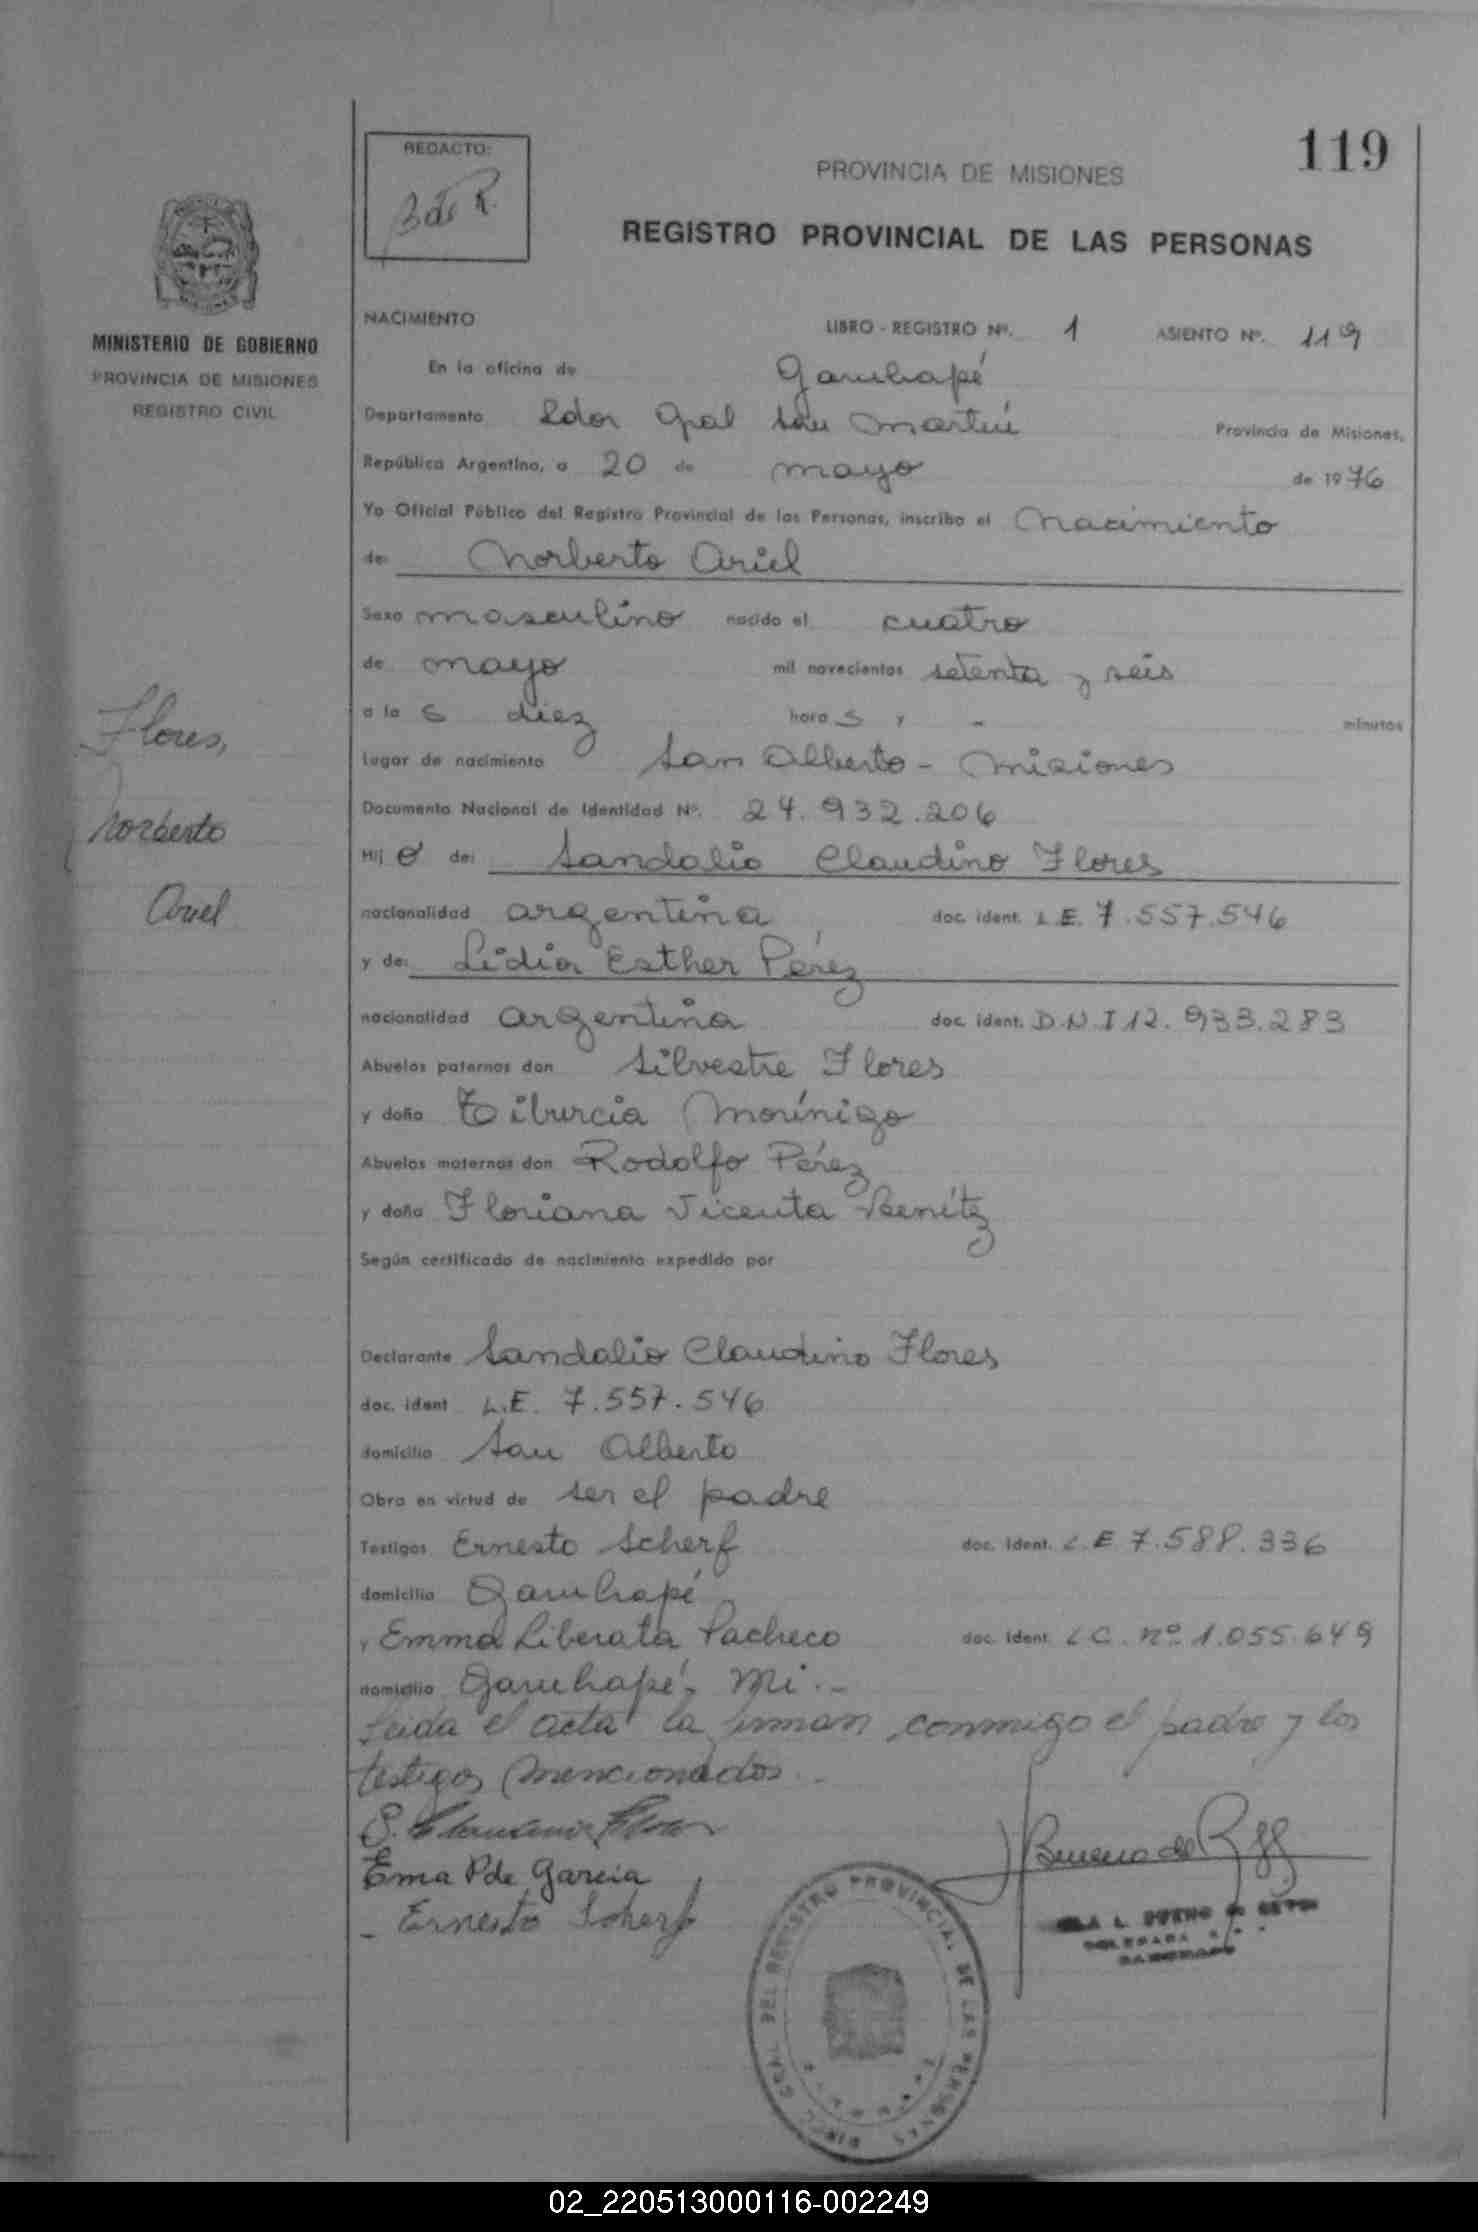 119
REDACTO:
B de R.
PROVINCIA DE MISIONES
REGISTRO PROVINCIAL DE LAS PERSONAS
MINISTERIO DE GOBIERNO
PROVINCIA DE MISIONES
REGISTRO CIVIL
NACIMIENTO LIBRO - REGISTRO Nº. 1 ASIENTO Nº. 119
En la oficina de Garuhapé
Departamento Ldor Gral San Martín Provincia de Misiones,
República Argentina, a 20 de mayo de 1976
Yo Oficial Público del Registro Provincial de las Personas, inscribo el Nacimiento
de: Norberto Ariel
Sexo masculino nacido el cuatro
de mayo mil novecientos setenta y seis
a la s diez hora s y - minutos
Lugar de nacimiento San Alberto - Misiones
Documento Nacional de Identidad Nº. 24.932.206
Hij o de: Sandalio Claudino Flores
nacionalidad argentina doc. ident. L.E. 7.557.546
y de: Lidia Esther Pérez
nacionalidad argentina doc. ident. D.N.I 12.933.283
Abuelos paternos don Silvestre Flores
y doña Tiburcia Morínigo
Abuelos maternos don Rodolfo Pérez
y doña Floriana Vicenta Benítez
Según certificado de nacimiento expedido por
Declarante Sandalio Claudino Flores
doc. ident L.E. 7.557.546
domicilio San Alberto
Obra en virtud de ser el padre
Testigos Ernesto Scherf doc. ident. L.E 7.588.336
domicilio Garuhapé
y Emma Liberata Pacheco doc. ident. L C. nº 1.055.649
domicilio Garuhapé - Mi.-
Leida el acta la firman conmigo el padre y los
testigos mencionados.-
S. Claudino Flores
Ema P de Garcia
- Ernesto Scherf
Flores,
Norberto
Ariel
Bueno de
DIREC. GRAL. DEL REGISTRO PROVINCIAL DE LAS PERSONAS
02_220513000116-002249